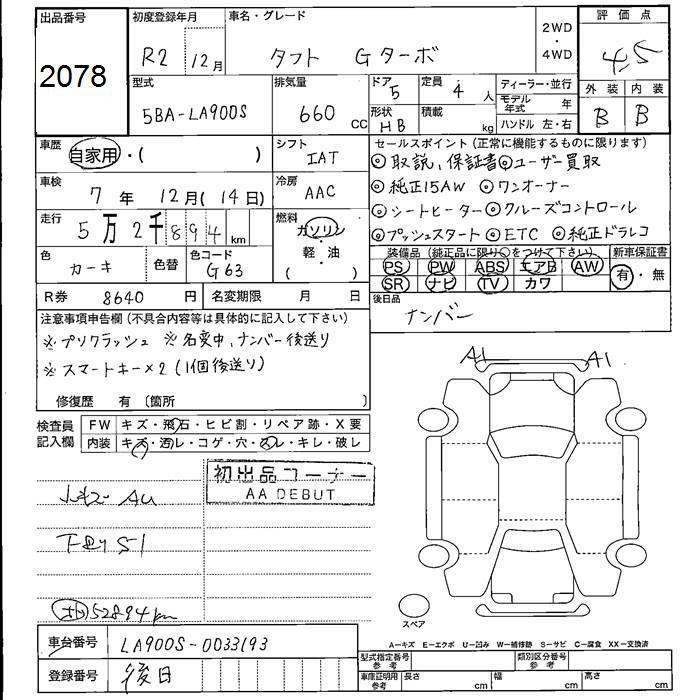 出品番号 初度登録年月 車名・グレード 2WD・4WD 評価点
2078 R2 12月 タフト Gターボ 4.5
型式 排気量 ドア 定員 ディーラー・並行 外装 内装
5BA-LA900S 660 CC 5 4 人 モデル年式 年 B B
形状 積載 ハンドル 左・右
HB kg
車歴 シフト セールスポイント(正常に機能するものに限ります)
自家用・( ) IAT ◎取説、保証書◎ユーザー買取
車検 冷房 ◎純正15AW ◎ワンオーナー
7年 12月(14日) AAC ◎シートヒーター◎クルーズコントロール
走行 燃料 ◎プッシュスタート◎ETC ◎純正ドラレコ
5万2千894km ガソリン・軽・油( )
色 色替 色コード 装備品(純正品に限り○をつけて下さい) 新車保証書
カーキ G63 PS PW ABS エアB AW 有・無
SR ナビ TV カワ
R券 8640円 名変期限 月 日 後日品
ナンバー
注意事項申告欄(不具合内容等は具体的に記入して下さい)
※プリクラッシュ ※名変中、ナンバー後送り
※スマートキー×2(1個後送り)
修復歴 有〔箇所 〕
A1 A1
検査員記入欄 FW キズ・飛石・ヒビ割・リペア跡・X要
内装 キズ・汚レ・コゲ・穴・スレ・キレ・破レ
初出品コーナー
AA DEBUT
AU
下回りS1
52894km
スペア
車台番号 LA900S-0033193
A−キズ E−エクボ U−凹み W−補修跡 S−サビ C−腐食 XX−交換済
型式指定番号 参考 類別区分番号 参考
登録番号 後日
車庫証明用 参考 長さ cm 幅 cm 高さ cm